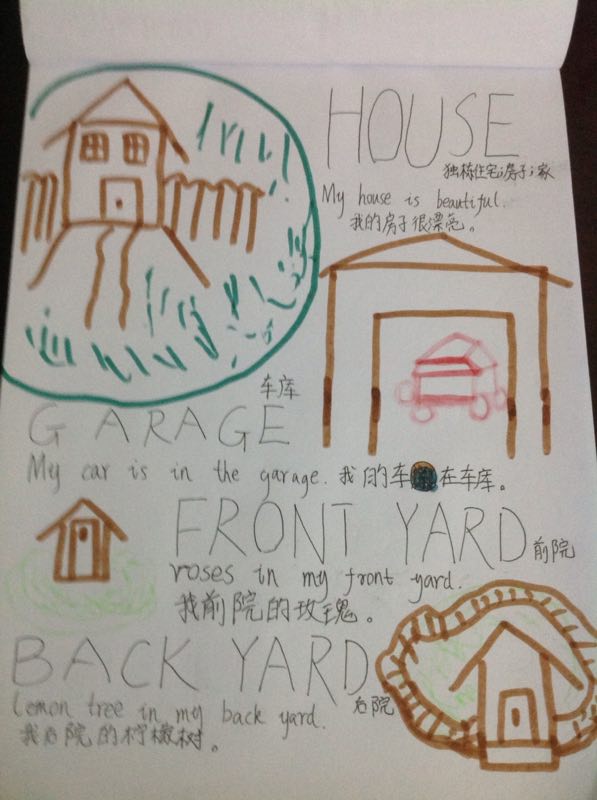 HOUSE
独栋住宅;房子;家
My house is beautiful.
我的房子很漂亮。
车库
GARAGE
My car is in the garage. 我的车在车库。
FRONT YARD 前院
roses in my front yard.
我前院的玫瑰。
BACK YARD 后院
lemon tree in my back yard.
我后院的柠檬树。